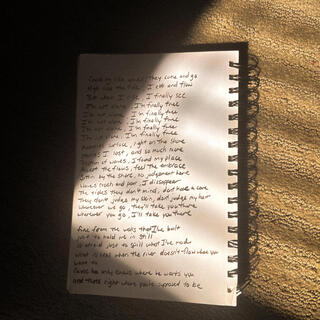 come my like waves, they come and go
High like the tide, I ebb and flow
But when I rise, I finally see
I'm not alone, I'm finally free
I'm not alone, I'm finally free
I'm not alone, I'm finally free
I'm not alone, I'm finally free
I'm not alone, I'm finally free
sunrise, light on the shore
I lost, and so much more
of waves, I found my place
the flows, feel the embrace
by the shore, no judgement here
waves crash and roar, I disappear
The tides they don't mind, don't have a care
They don't judge my skin, don't judge my hair
wherever we go, they'll take you there
wherever you go, I'll take you there
free from the walls that I've built
to hold me in still
afraid just to spill what I've made
what is real when the river doesn't flow when you
want to
cause he only knows where he wants you
and that's right where you're supposed to be